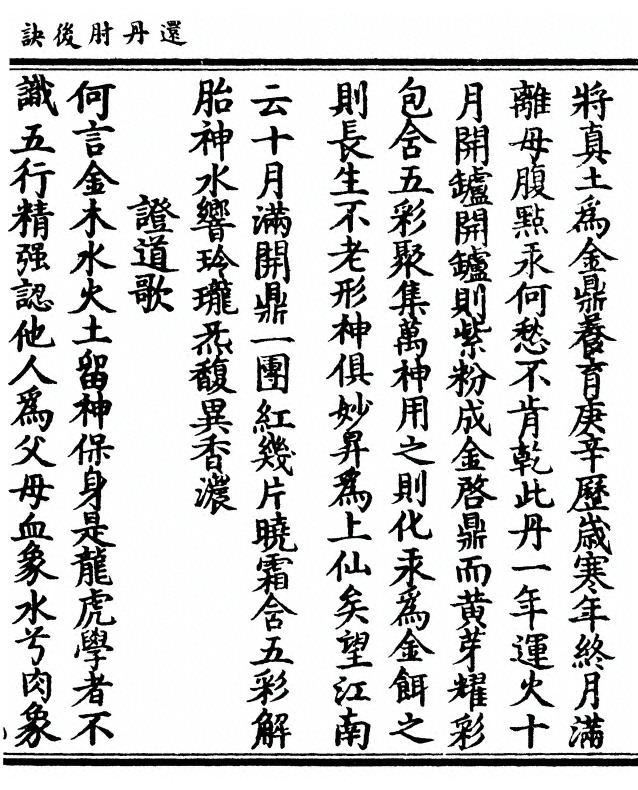 還丹肘後訣
將真土爲金鼎養育庚辛歷歲寒年終月滿
離母腹點汞何愁不肯乾此丹一年運火十
月開鑪開鑪則紫粉成金啓鼎而黄芽耀彩
包含五彩聚集萬神用之則化汞爲金餌之
則長生不老形神俱妙昇爲上仙矣望江南
云十月滿開鼎一團紅幾片曉霜含五彩解
胎神水響玲瓏炁馥異香濃
證道歌
何言金木水火土留神保身是龍虎學者不
識五行精强認他人爲父母血象水兮肉象